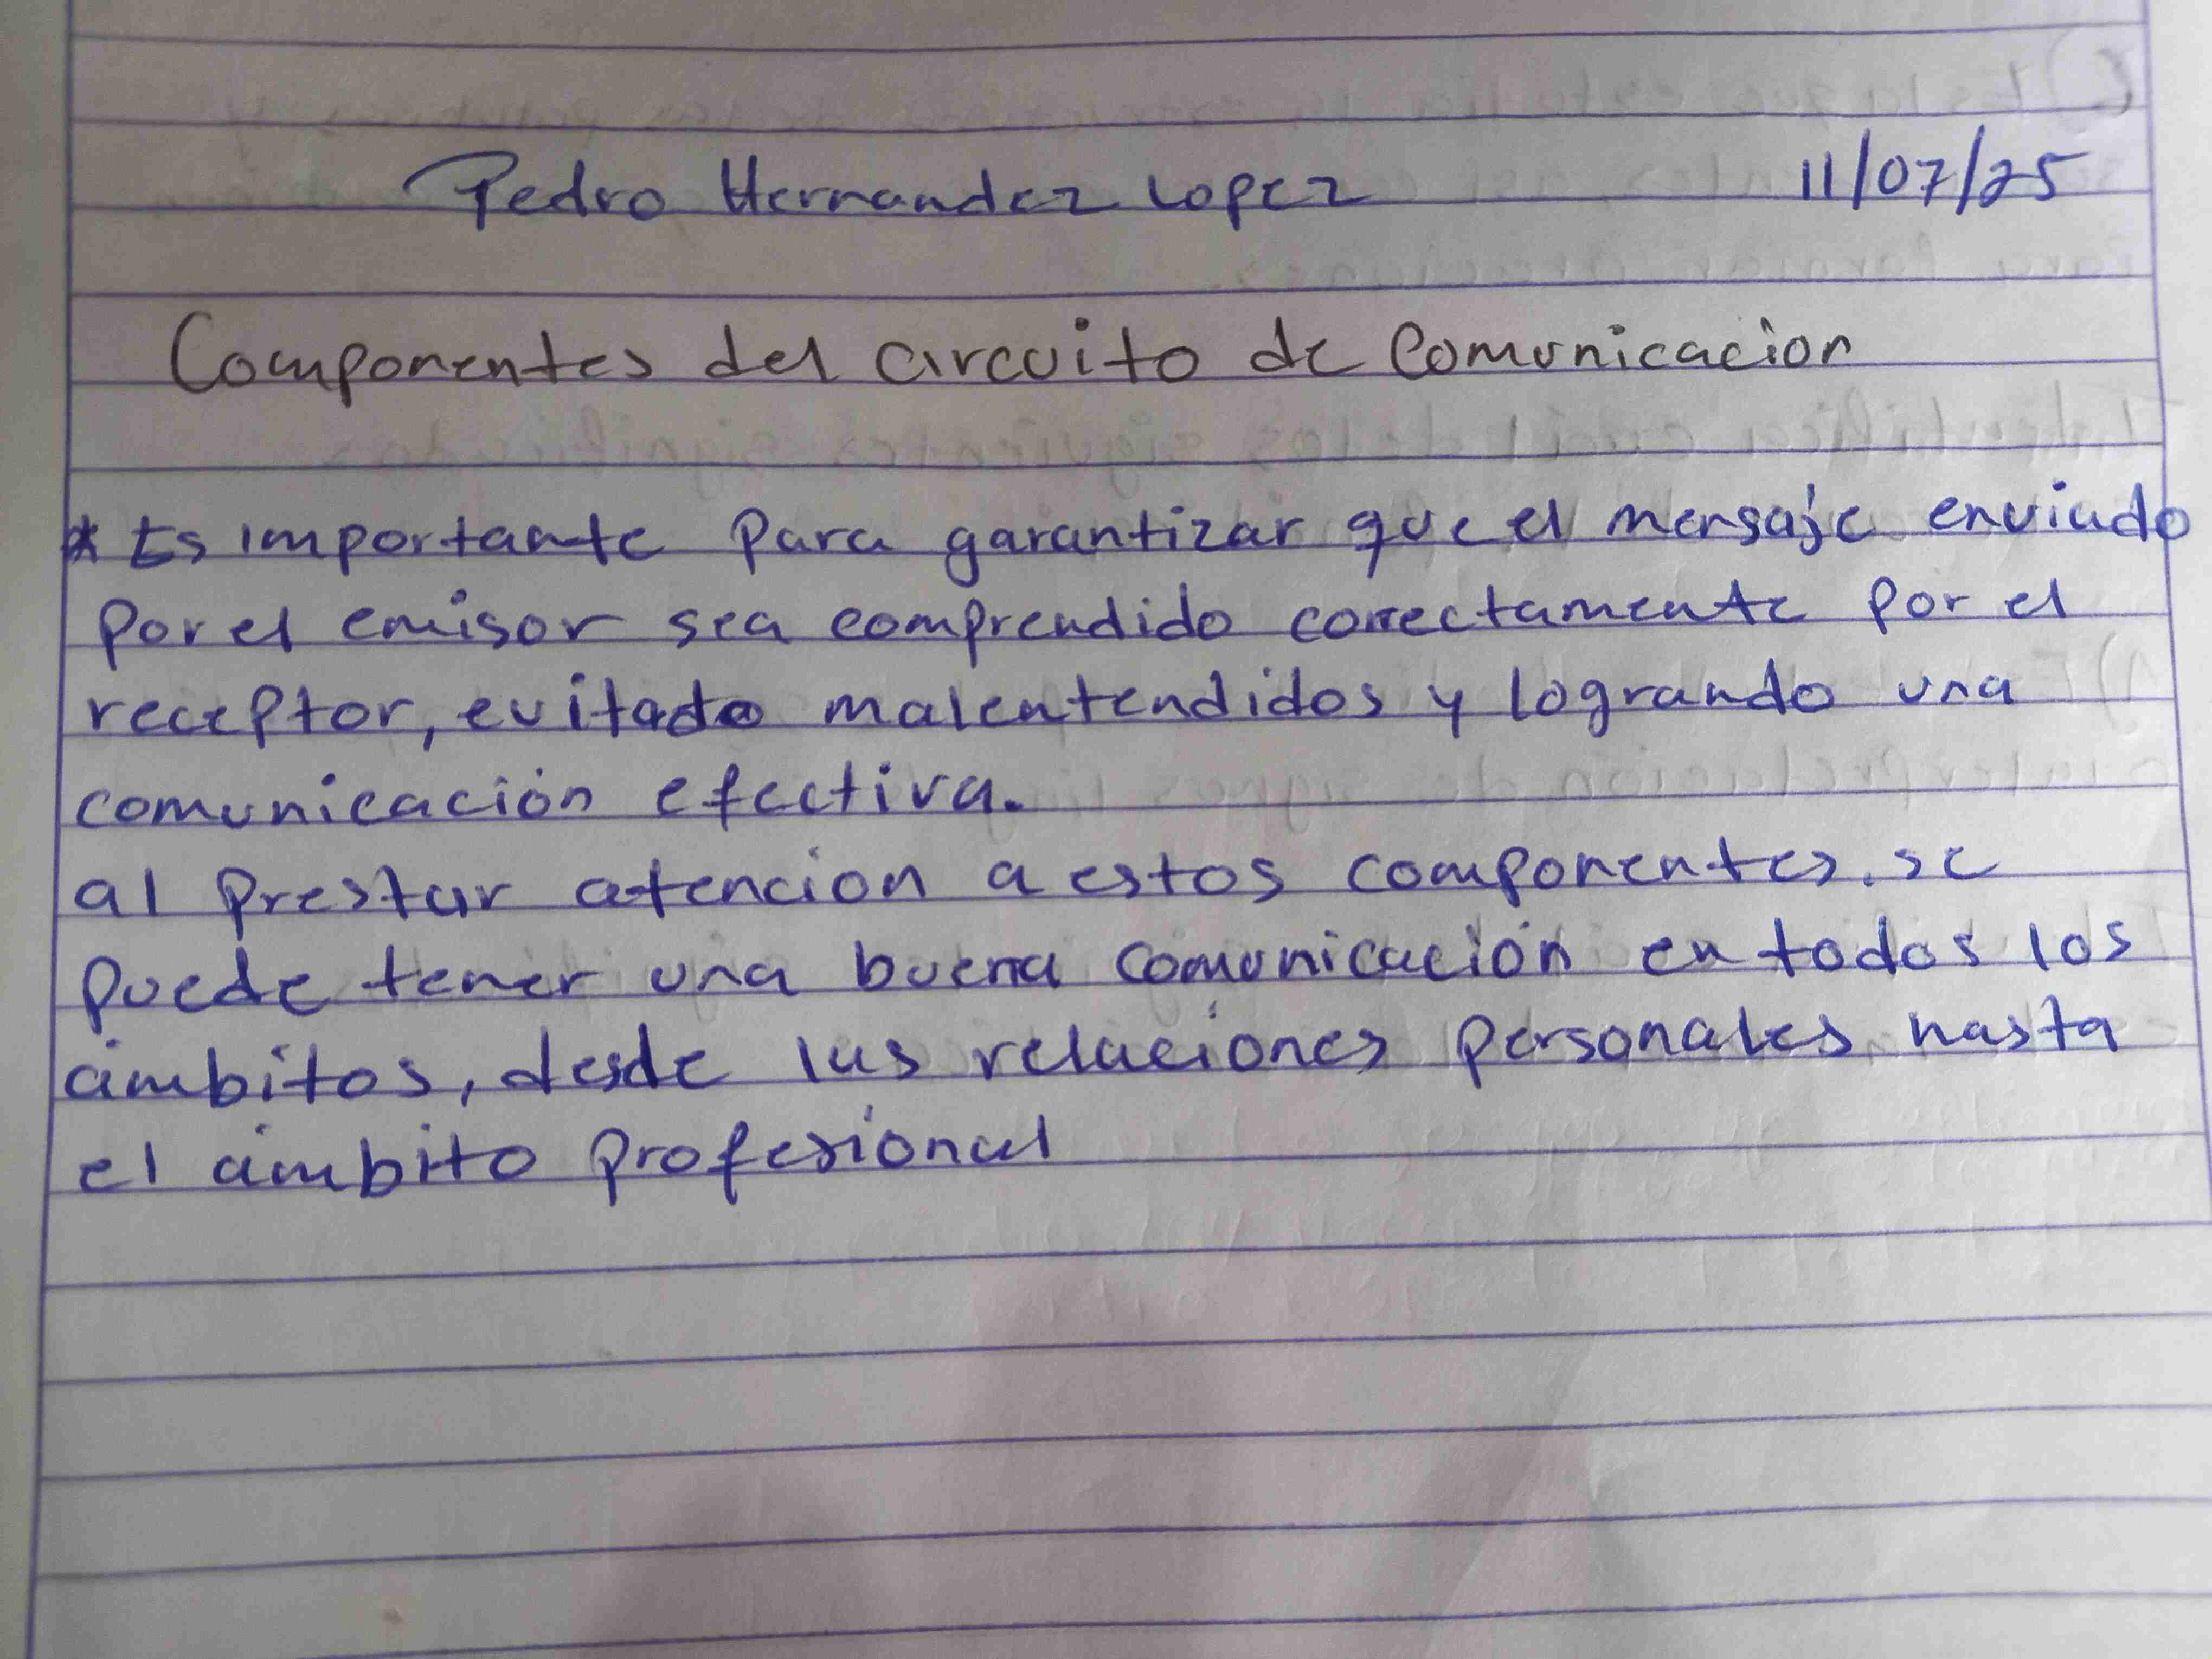 Pedro Hernandez Lopez 11/07/25
Componentes del circuito de Comunicacion
* Es importante para garantizar que el mensaje enviado
por el emisor sea comprendido correctamente por el
receptor, evitado malentendidos y logrando una
comunicación efectiva.
al prestar atencion a estos componentes. se
puede tener una buena comunicación en todos los
ámbitos, desde las relaciones personales hasta
el ámbito profesional